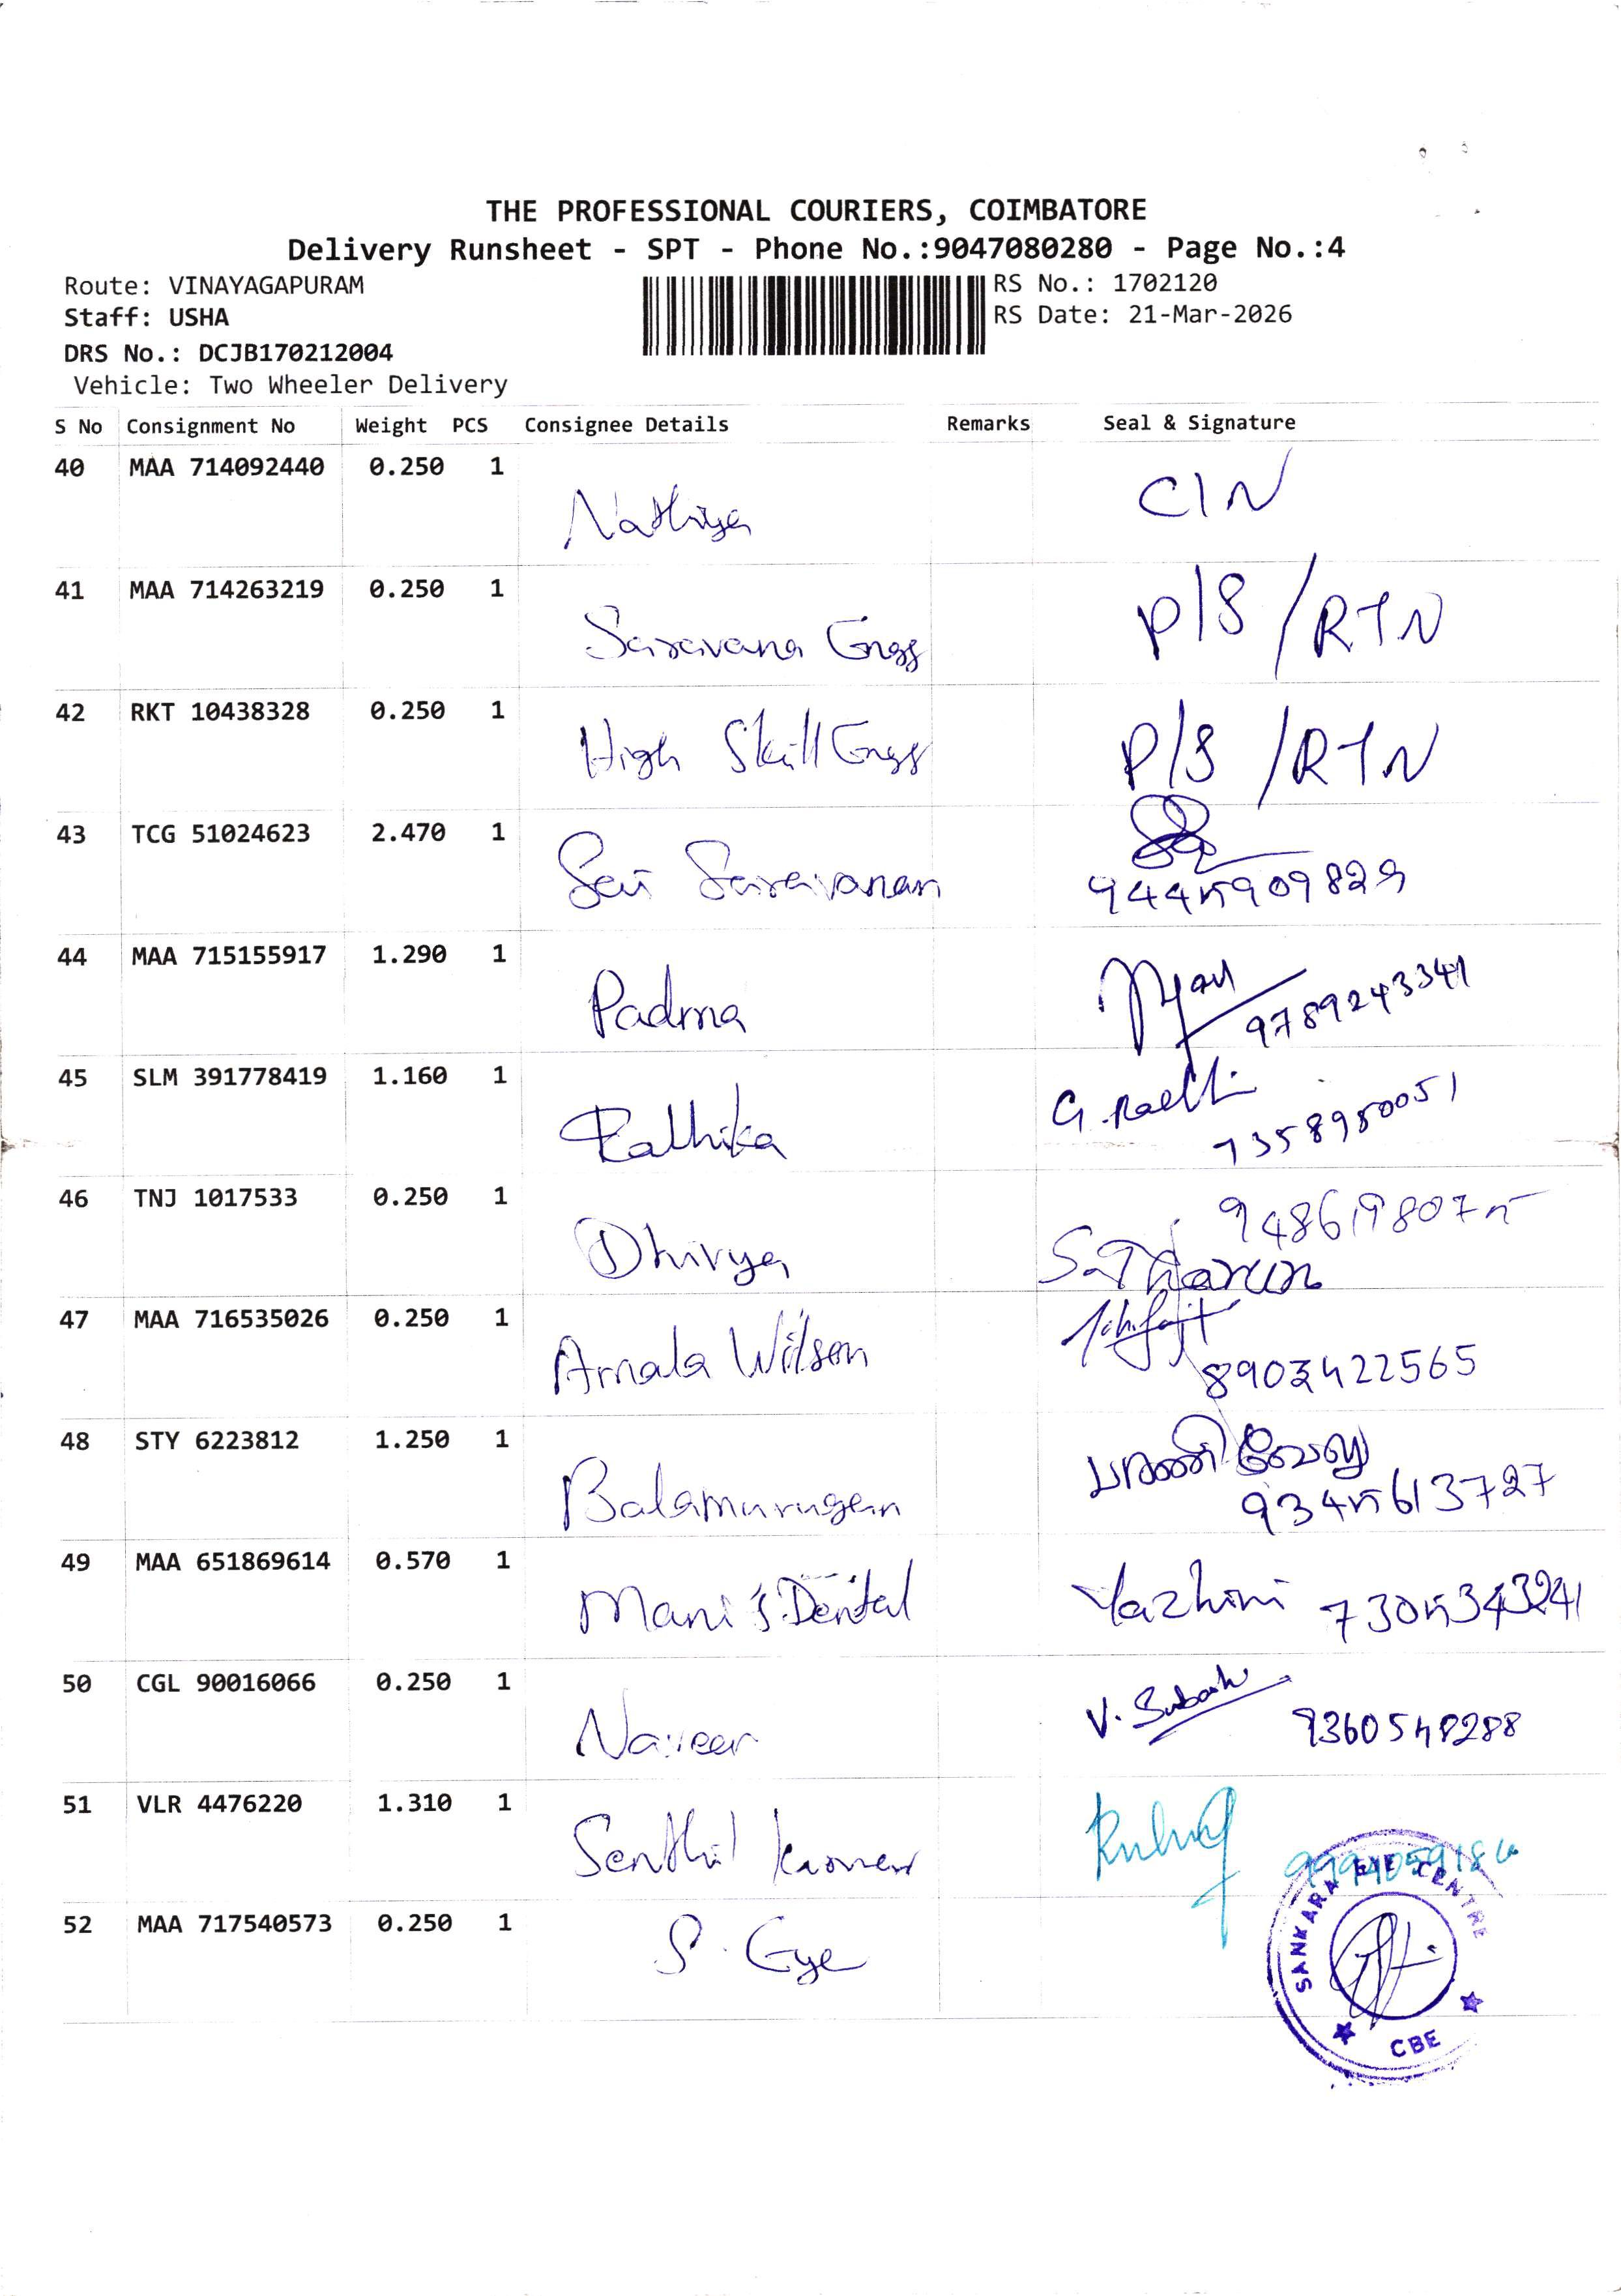 THE PROFESSIONAL COURIERS, COIMBATORE
Delivery Runsheet - SPT - Phone No.:9047080280 - Page No.:4
Route: VINAYAGAPURAM
RS No.: 1702120
Staff: USHA
RS Date: 21-Mar-2026
DRS No.: DCJB170212004
Vehicle: Two Wheeler Delivery
S No Consignment No Weight PCS Consignee Details Remarks Seal & Signature
40 MAA 714092440 0.250 1
Nathiya CIN
41 MAA 714263219 0.250 1
Saravana Engg P/S /RTN
42 RKT 10438328 0.250 1
High Skill Engg P/S /RTN
43 TCG 51024623 2.470 1
Sai Saravanan 9445909829
44 MAA 715155917 1.290 1
Padma 9789243341
45 SLM 391778419 1.160 1
Rathika G. 7358980051
46 TNJ 1017533 0.250 1
9486198075
Dhivya S.Tharun
47 MAA 716535026 0.250 1
Amala Wilson 8903422565
48 STY 6223812 1.250 1
பரணி வேலு
Balamurugan 9345613727
49 MAA 651869614 0.570 1
Mani's Dental Yazhini 7305343241
50 CGL 90016066 0.250 1
V. Subash
Naveen 9360548288
51 VLR 4476220 1.310 1
Senthil Kumar
52 MAA 717540573 0.250 1
S. Eye
SANKARA EYE CENTRE
CBE